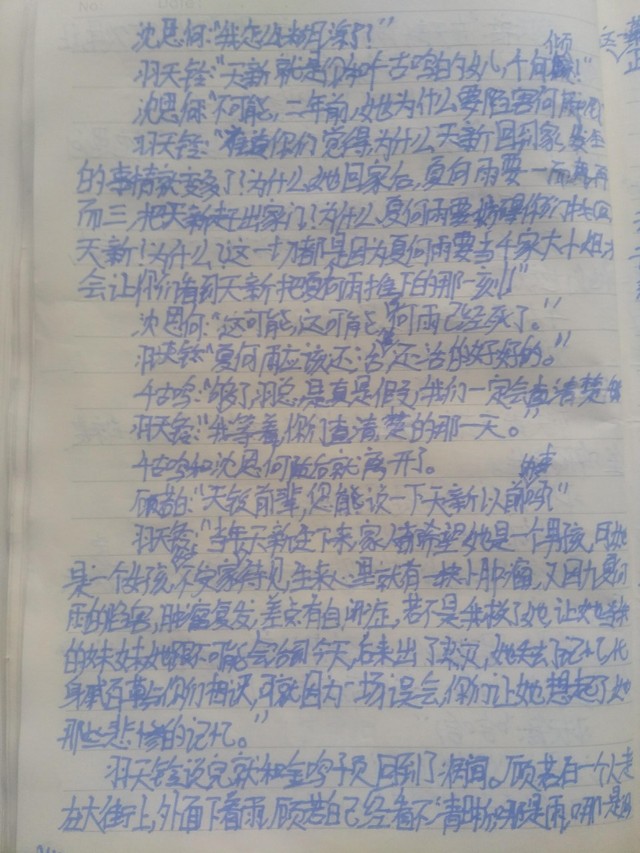 沈思何:"我怎么越听越深了?"
羽天铨:"天新就是你和千古鸣的女儿,千何倾!"
沈思何:"不可能,二年前,她为什么要陷害何雨
羽天铨:"有没有你们觉得,为什么天新回到家,发生
的事情就变多了?为什么她回家后,夏何雨要一而再再
而三,把天新赶出家门?为什么夏何雨要你们找回
天新!为什么?这一切都是因为夏何雨要当千家大小姐,才
会让你们看到天新把夏何雨推下的那一刻!"
沈思何:"这可能,这可能,何雨已经死了。"
羽天铨:"夏何雨应该还活,还活的好好的。"
千古鸣:"够了,羽总,是真是假,我们一定会查清楚
羽天铨:"我等着,你们查清楚的那一天。"
千古鸣和沈思何随后就离开了。
顾若白:"天铨前辈,您能说一下天新以前的事吗?"
羽天铨:"当年天新生下来,家人希望她是一个男孩,可她
是一个女孩,不受家人待见,生来心里就有一块小肿瘤,又因为夏何
雨的陷害,肿瘤复发,差点有自闭症,若不是我救了她,让她当我
的妹妹,她很不可能会活到今天,后来出了火灾,她失去了记忆,化
身戚百草与你们相识,可就因为一场误会,你们让她想起了她
那些悲惨的记忆。"
羽天铨说完就和金鸣子页回到了病间。顾若白一个人走
在大街上,外面下着雨,顾若白已经看不清晰哪是雨,哪是